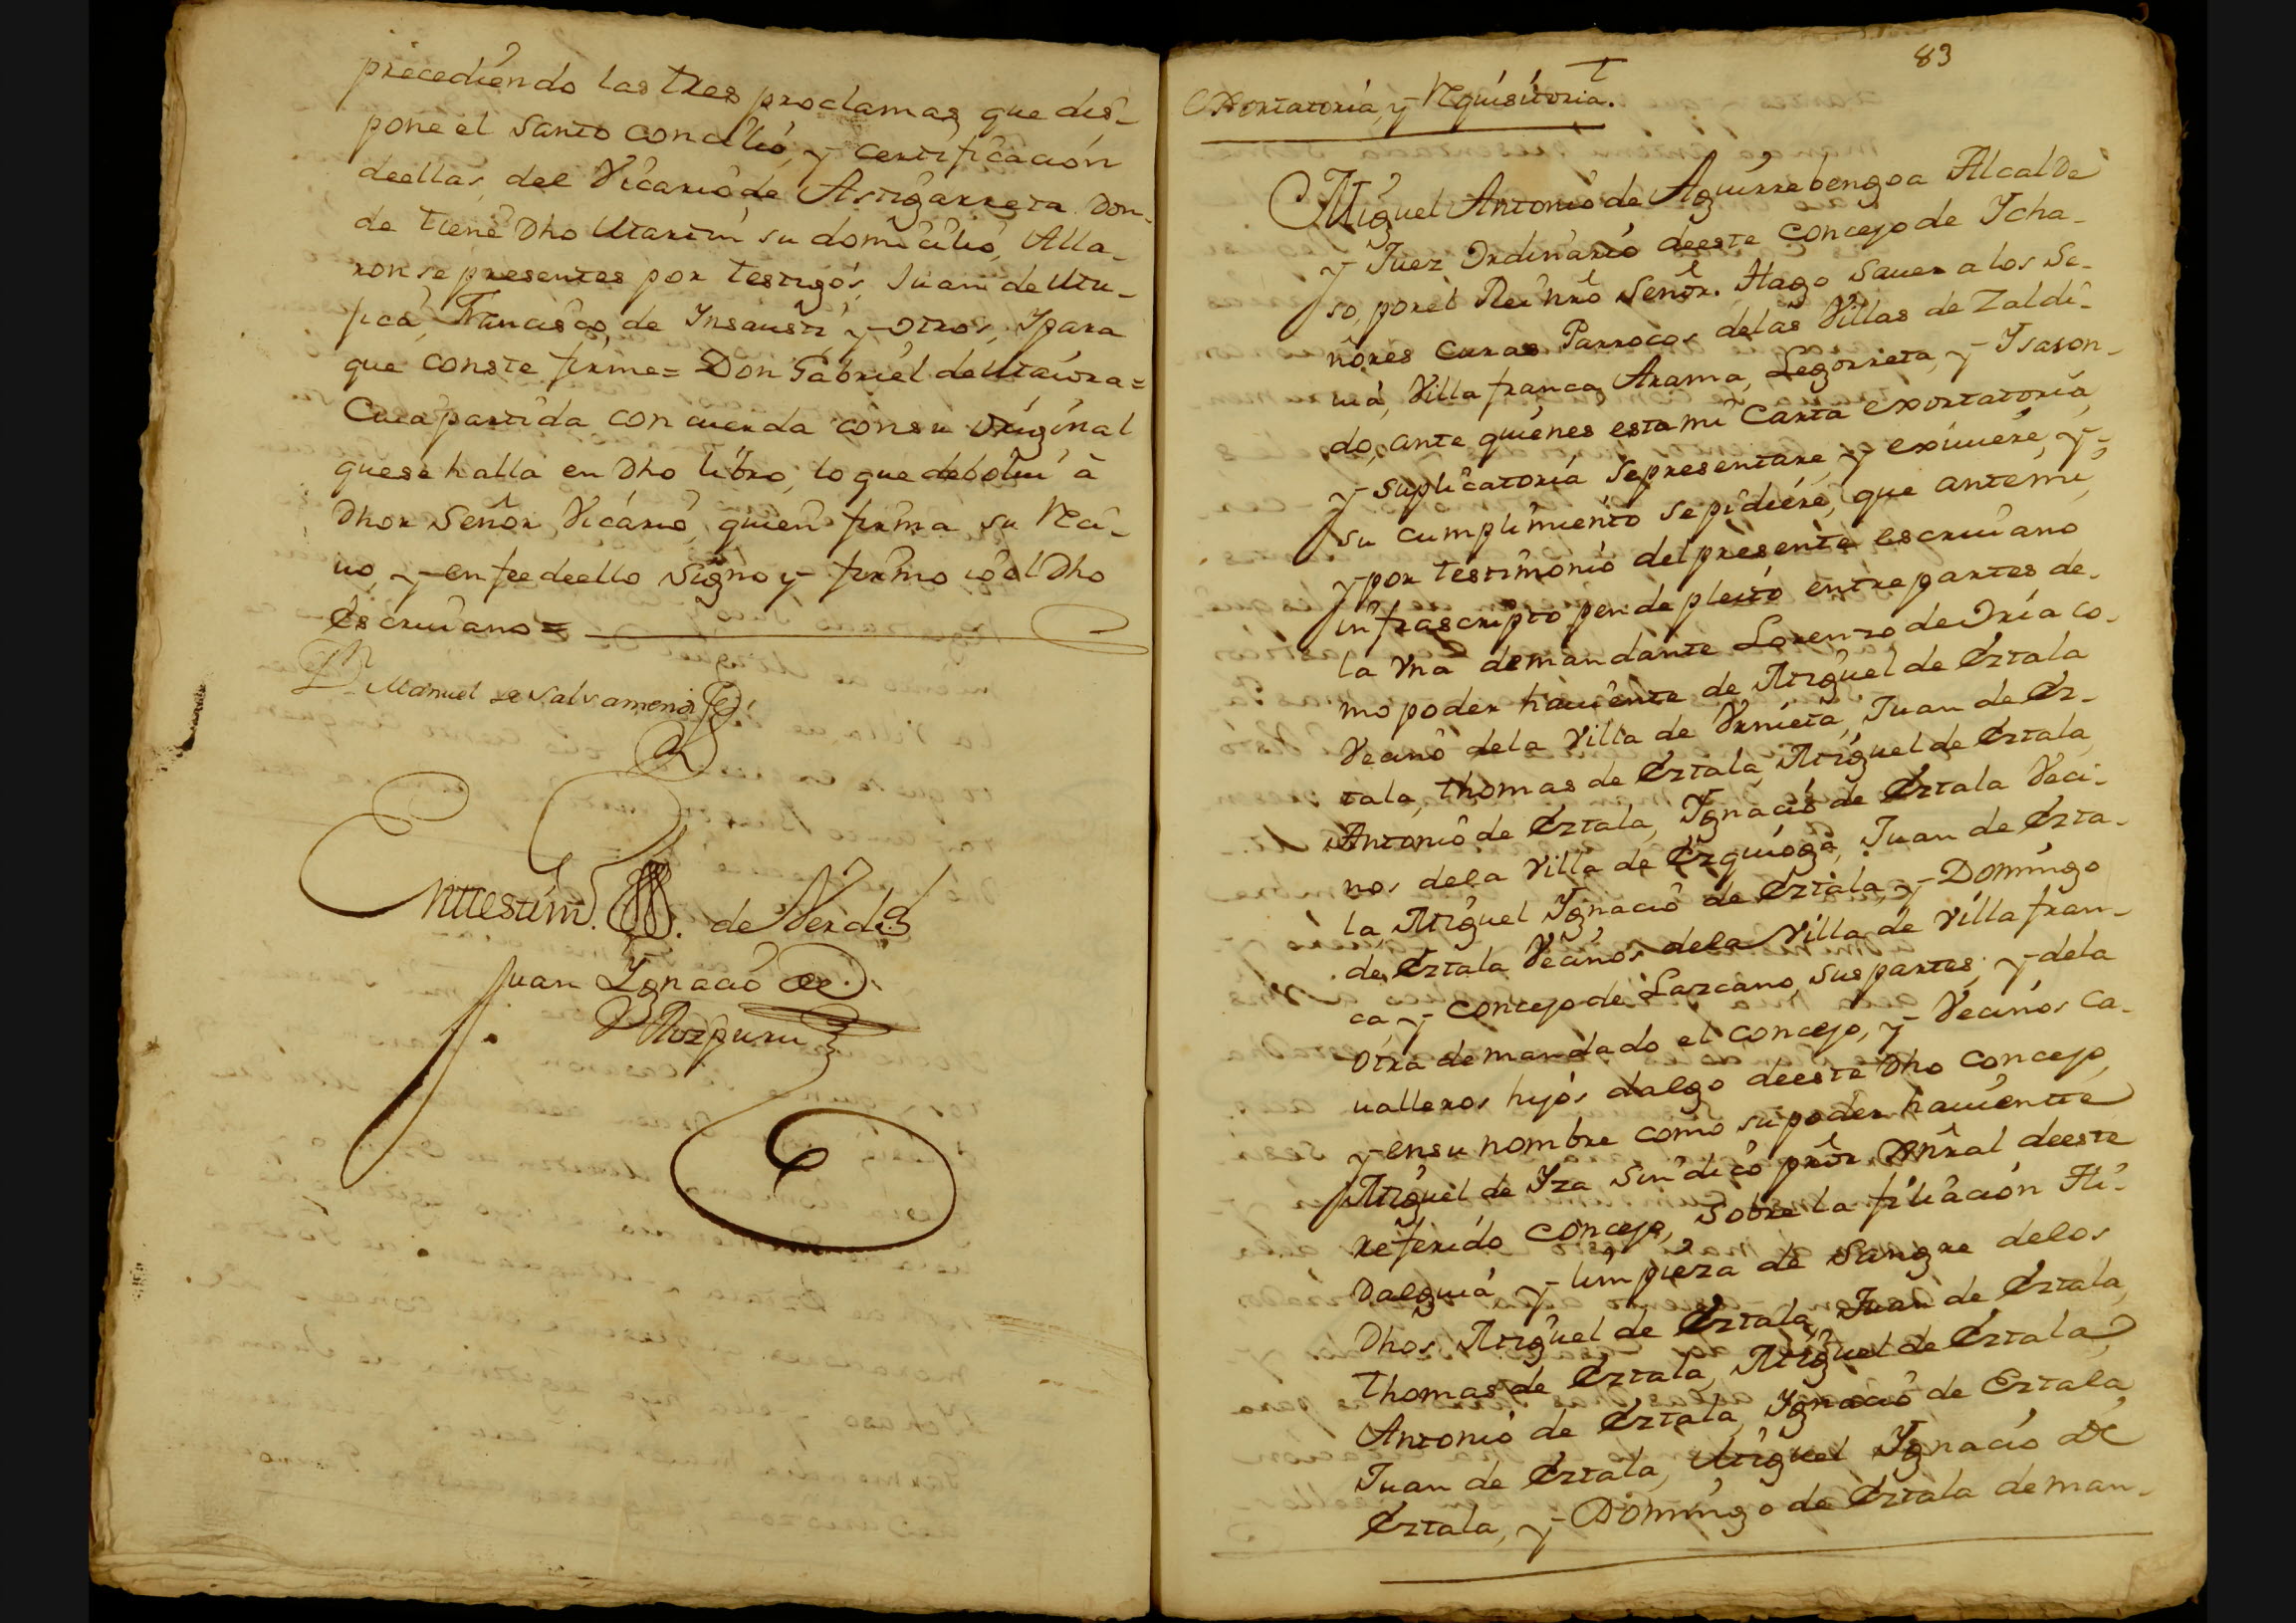 precediendo las tres proclamas que dis-
pone el Santo Concilio, y certificación
deellas, del Vicario de Astigarreta Don-
de tiene Dho Martin su domicilio, Alla-
ronse presentes por testigos, Juan de Mu-
jica, Francisco, de Insausti, y otros, Ypara
que conste firme = Don Gabriel de Maiora =
Cuia partida concuerda con su original
que se halla en Dho libro, lo que debolui à
Dhor Señor Vicario, quien firma su Reci-
uo, y en fee deello Signo y firmo io el Dho
Escriuano =
Dn Manuel de Salsamendi
En testim. de Verdd
Juan Ygnacio de
Aozpuru
83
Exortatoria, y Requisitoria.
Miguel Antonio de Aguirrebengoa Alcalde
y Juez Ordinario deeste Concejo de Ycha-
so, por el Rei nrô Señor. Hago Sauer a los Se-
ñores Curas Parrocos delas Villas de Zaldi-
uia, Villafranca, Arama, Legorreta, y Ysason-
do, ante quienes esta mi Carta exortatoria,
y suplicatoria se presentare, y exiuiere, y
su cumplimiento se pidiere, que ante mi,
y por testimonio del presente escriuano
infrascripto pende pleito entre partes de-
la vna demandante Lorenzo de Oria co-
mo poder hauiente de Miguel de Eztala
Vecino dela Villa de Vrnieta, Juan de Ez-
tala, thomas de Eztala, Miguel de Eztala,
Antonio de Eztala, Ygnacio de Eztala Veci-
nos dela Villa de Ezquioga, Juan de Ezta-
la, Miguel Ygnacio de Eztala, y Domingo
de Eztala Vecinos dela Villa de Villafran-
ca, y Concejo de Lazcano, sus partes, y dela
otra demandado el Concejo, y Vecinos Ca-
ualleros hijos dalgo deeste Dho Concejo,
y en su nombre como su poder hauiente
Miguel de Yza Sindico prôr Gênral deeste
referido Concejo, sobre la filiación Hi-
dalguia y limpieza de Sangre delos
Dhos Miguel de Eztala, Juan de Eztala,
thomas de Eztala, Miguel de Eztala,
Antonio de Eztala, Ygnacio de Eztala,
Juan de Eztala, Miguel Ygnacio de
Eztala, y Domingo de Eztala deman-